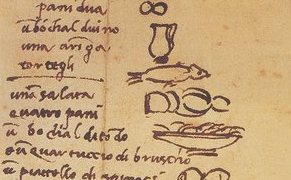 pani dua
ū bochal di vino
una aringa
tortegli
una salata
quatro pani
ū bochal di tōdo
e un quartuccio di bruscho
ū piattello di spinaci